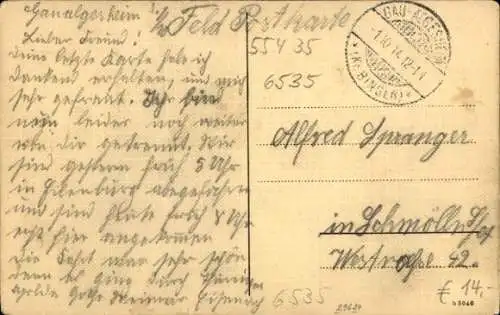 Gaualgesheim
Feld Postkarte
Lieber Freund!
deine letzte Karte habe ich
dankend erhalten, und mich
sehr gefreut. Ich bin
nun leider noch weiter
von dir getrennt. Wir
sind gestern früh 5 Uhr
in Eilenburg abgefahren
und sind heute früh 8 Uhr
erst hier angekommen
die Fahrt war sehr schön
denn es ging durch Thüringen
Apolda Gotha Weimar Eisenach
55435
6535
GAU-ALGESHEIM
1.10.14.12-1
(KR. BINGEN)
Alfred Spranger
in Schmölln
42.
6535
€ 14,-